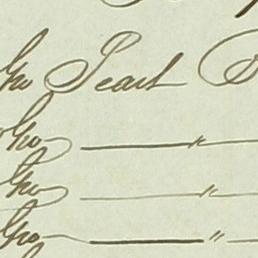 Geo Peart
Geo — " —
Geo — " —
Geo — " —